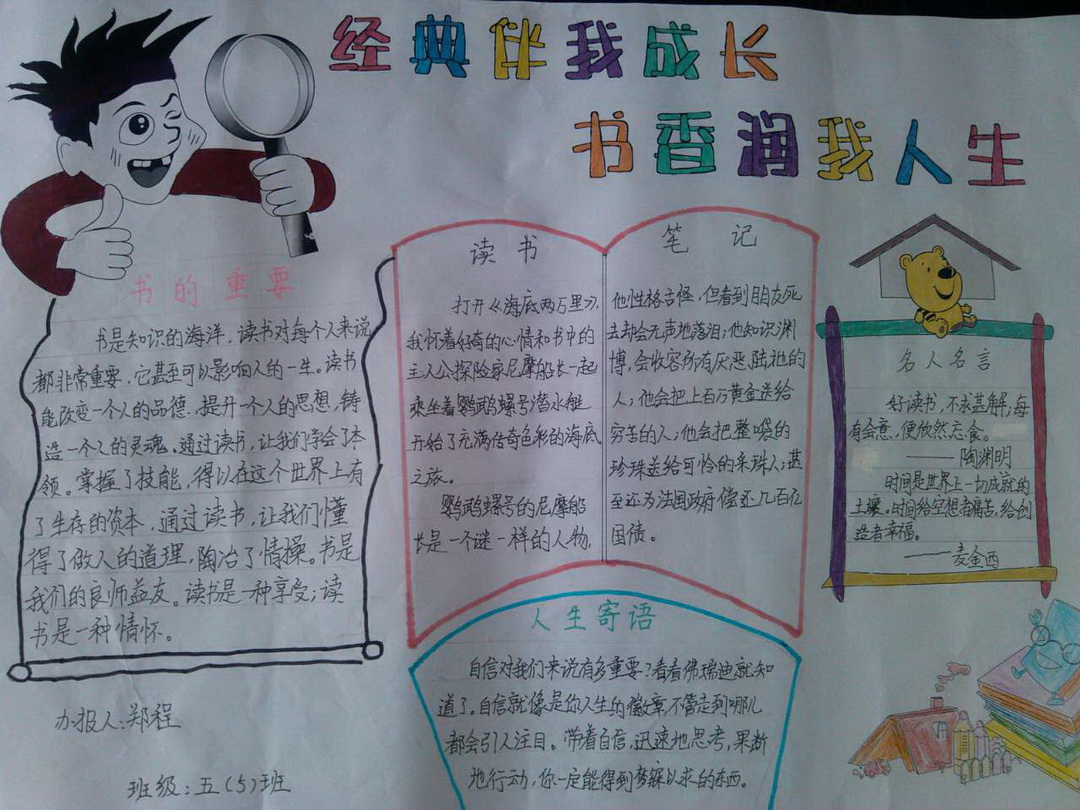 经典伴我成长
书香润我人生
书的重要
书是知识的海洋，读书对每个人来说
都非常重要，它甚至可以影响人的一生。读书
能改变一个人的品德，提升一个人的思想，铸
造一个人的灵魂。通过读书，让我们学会了本
领。掌握了技能，得以在这个世界上有
了生存的资本，通过读书，让我们懂
得了做人的道理，陶冶了情操。书是
我们的良师益友。读书是一种享受；读
书是一种情怀。
办报人：郑程
班级：五（5）班
读书
打开《海底两万里》，
我怀着好奇的心情和书中的
主人公探险家尼摩船长一起
乘坐着鹦鹉螺号潜水艇
开始了充满传奇色彩的海底
之旅。
鹦鹉螺号的尼摩船
长是一个谜一样的人物，
笔记
他性格古怪，但看到朋友死
去却会无声地落泪；他知识渊
博，会收容所有厌恶陆地的
人；他会把上百万黄金送给
穷苦的人；他会把整喛的
珍珠送给可怜的采珠人；甚
至还为法国政府偿还几百亿
国债。
名人名言
好读书，不求甚解；每
有会意，便欣然忘食。
——陶渊明
时间是世界上一切成就的
土壤。时间给空想者痛苦，给创
造者幸福。
——麦金西
人生寄语
自信对我们来说有多重要？看看佛瑞迪就知
道了。自信就像是你人生的徽章，不管走到哪儿
都会引人注目。带着自信，迅速地思考，果断
地行动，你一定能得到梦寐以求的东西。